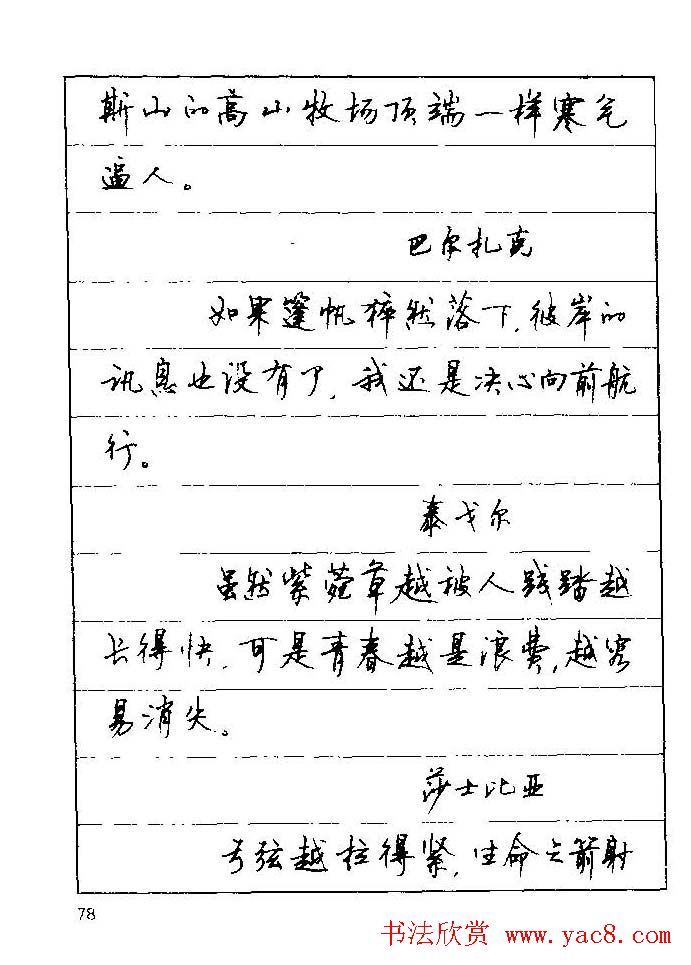 斯山的高山牧场顶端一样寒气
逼人。
巴尔扎克
如果篷帆猝然落下,彼岸的
讯息也没有了,我还是决心向前航
行。
泰戈尔
虽然紫菀草越被人践踏越
长得快,可是青春越是浪费,越容
易消失。
莎士比亚
弓弦越拉得紧,生命之箭射
78
书法欣赏 www.yac8.com